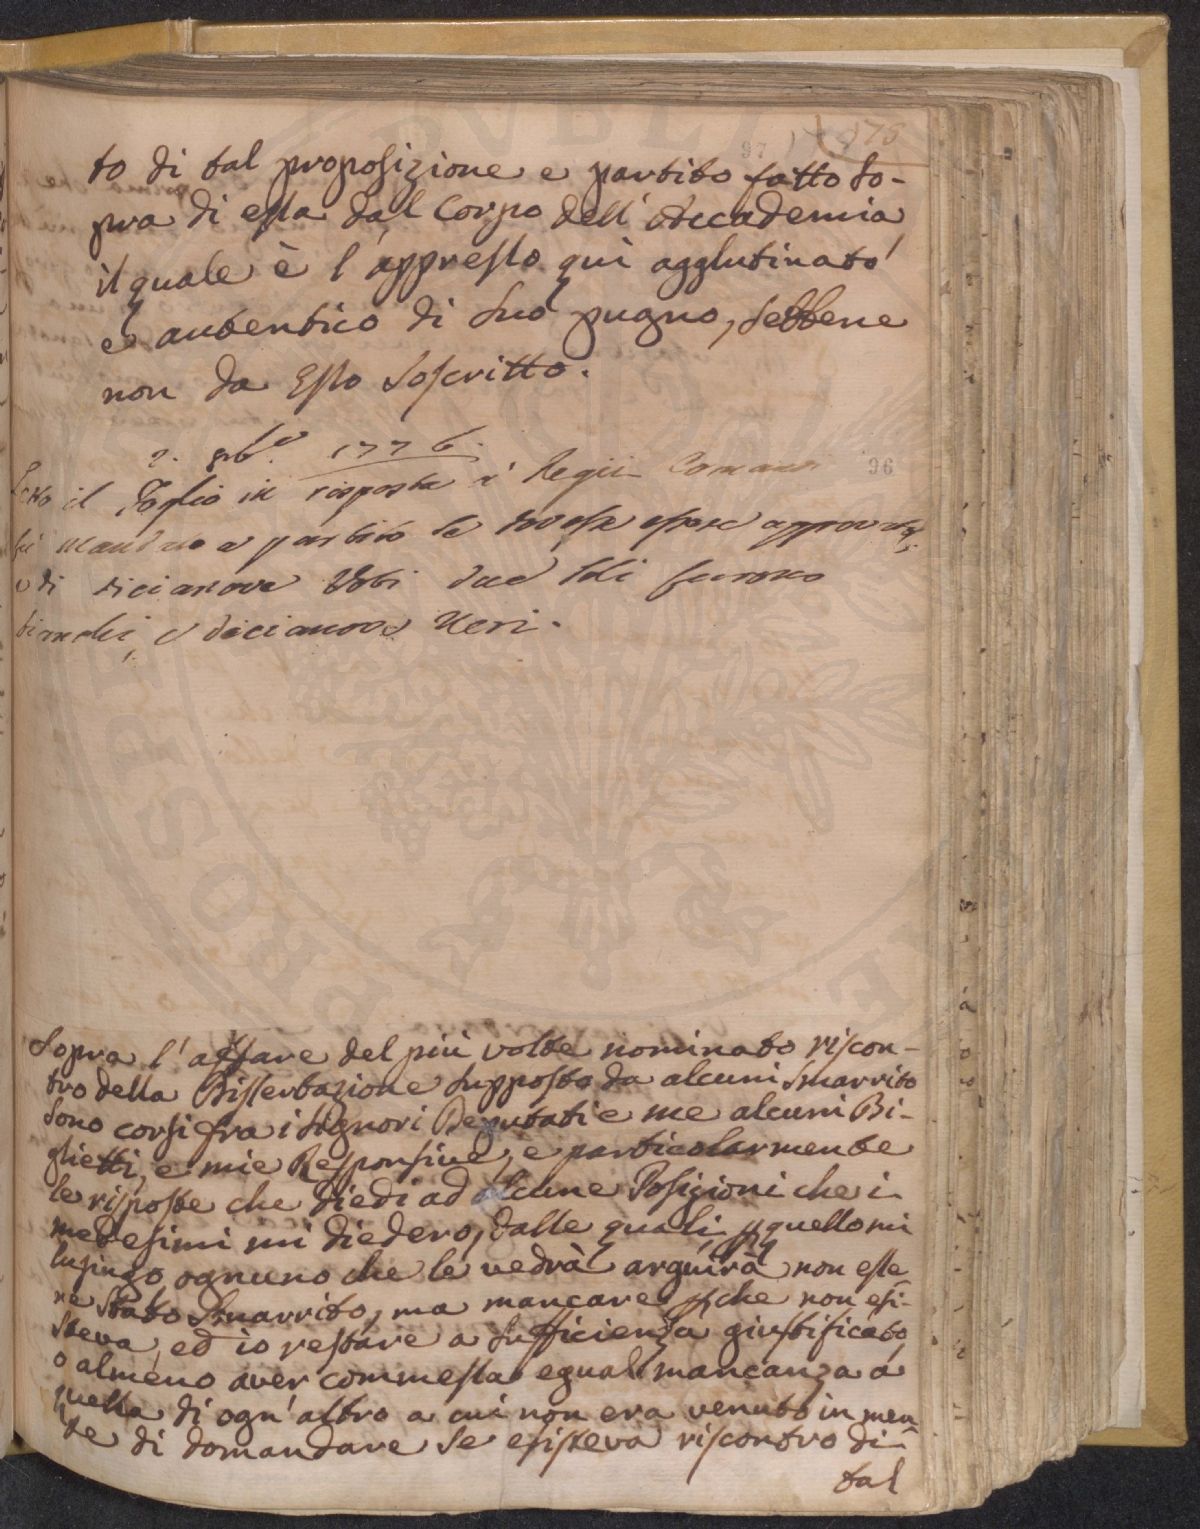 to di tal proposizione e partito fatto so-
pra di essa dal Corpo dell'Accademia
il quale è l'appresso qui agglutinato
e autentico di suo pugno, sebbene
non da Esso soscritto.
2. 8b.e 1776.
Letto il Foglio in risposta a' Regii Comandi
96
fù mandato a partito se dovesse essere approvato,
e di dicianove Voti due soli furono
bianchi, e dicianove Neri.
Sopra l'affare del più volte nominato riscon-
tro della Dissertazione supposto da alcuni smarrito
sono corsi fra i Signori Deputati e me alcuni Bi-
glietti, e mie Responsive, e particolarmente
le risposte che diedi ad alcune Posizioni che i
medesimi mi diedero, dalle quali p quello mi
lusingo ognuno che le vedrà arguirà non esse-
re stato smarrito, ma mancare pche non esi-
steva, ed io restare a sufficienza giustificato,
o almeno aver commessa egual mancanza a
quella di ogn'altro a cui non era venuto in men
te di domandare se esisteva riscontro di
tal